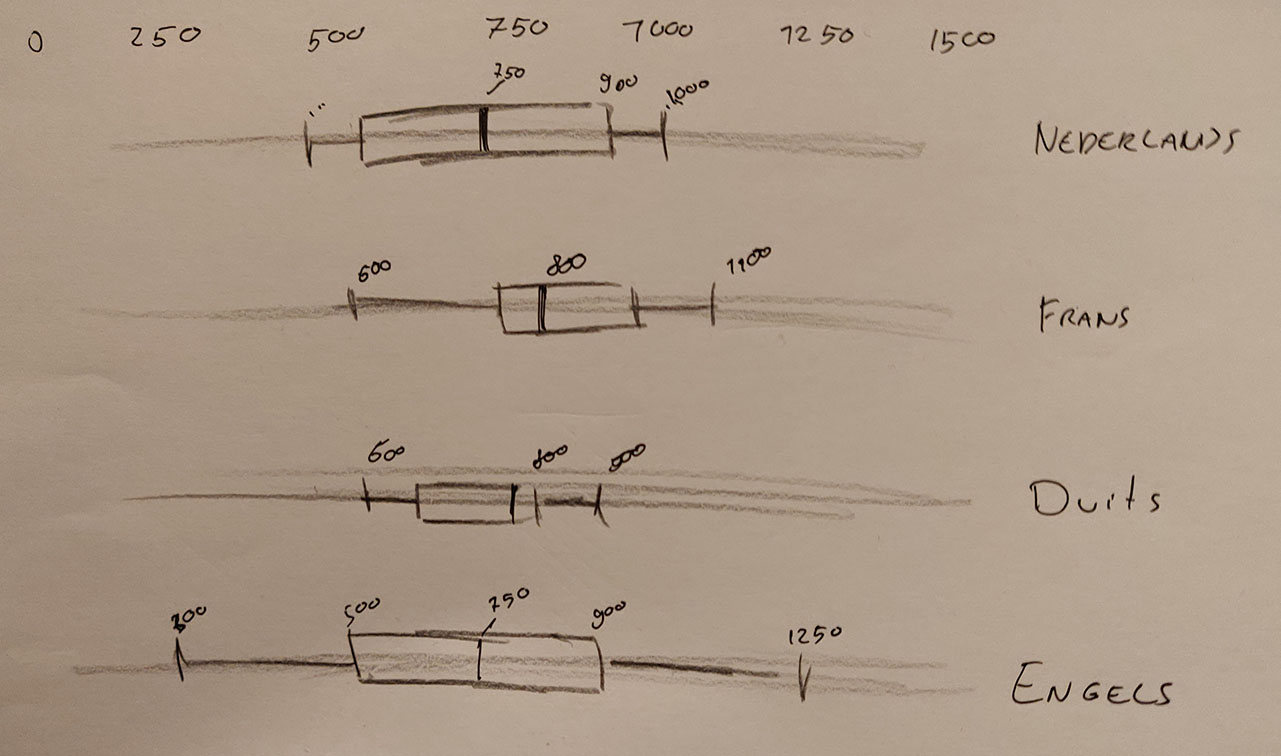 0 250 500 750 1000 1250 1500
... 750 900 1000 NEDERLANDS
600 800 1100 FRANS
600 800 900 Duits
300 500 750 900 1250 ENGELS